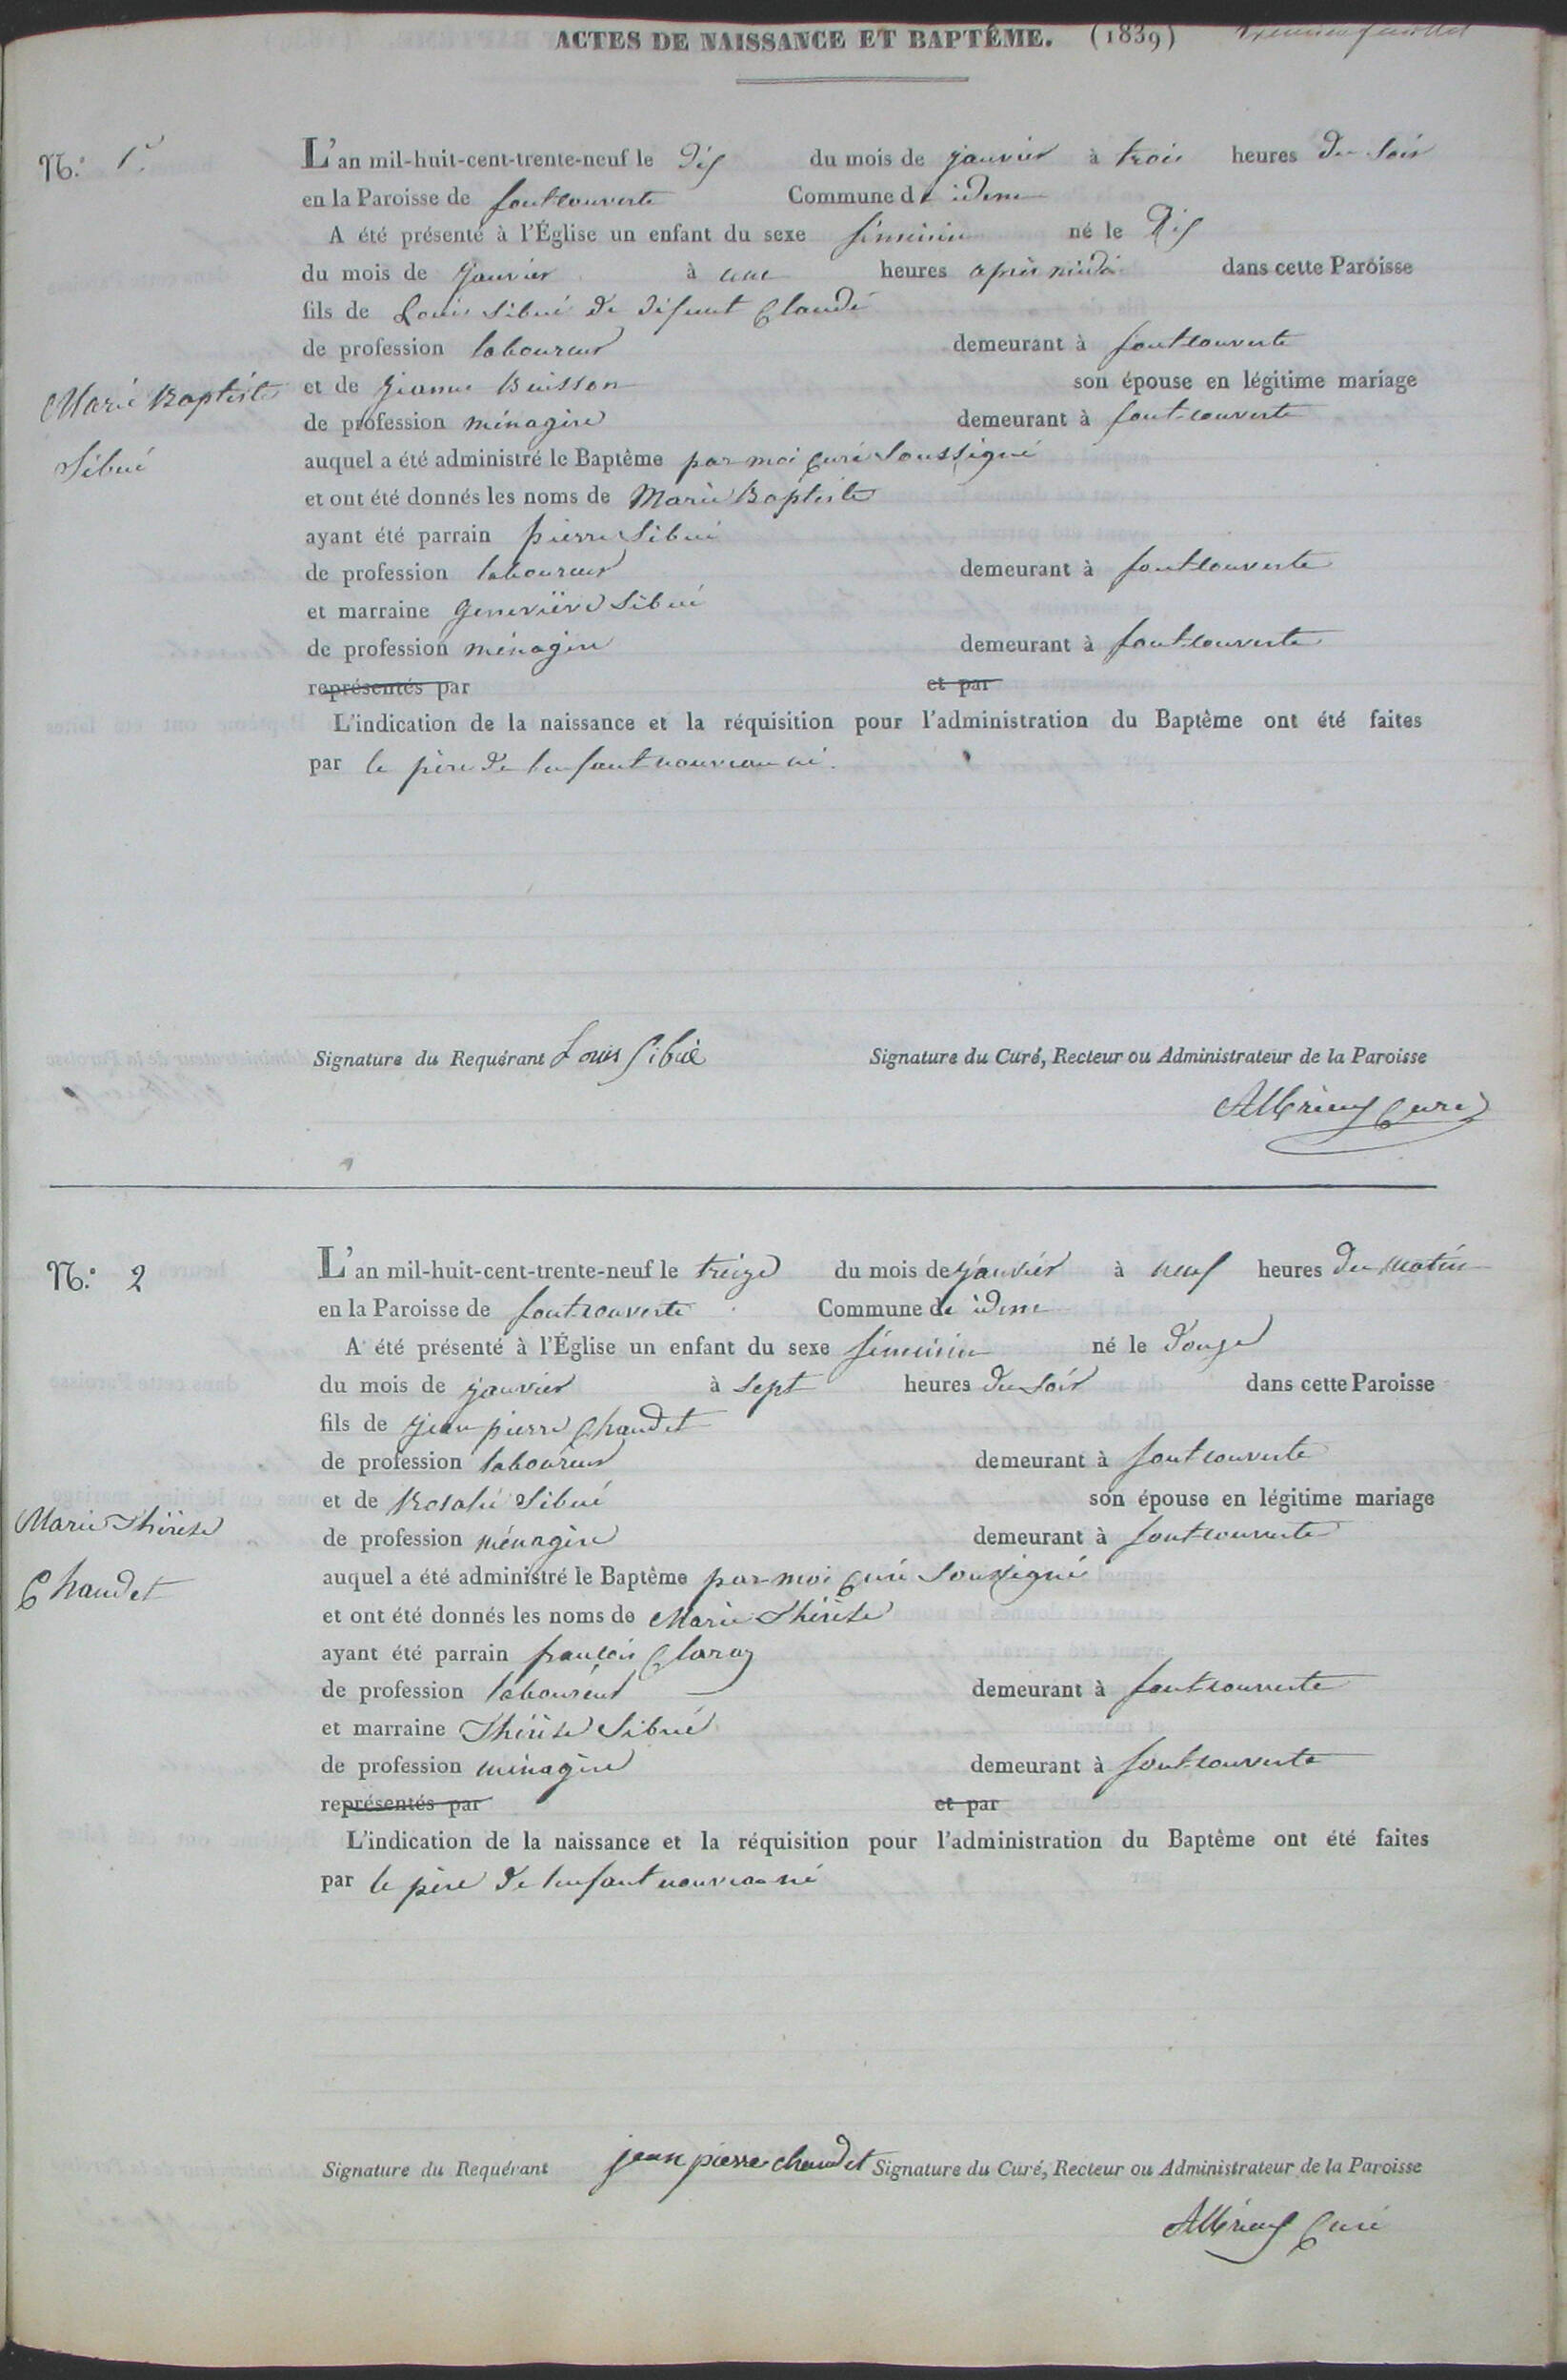 ACTES DE NAISSANCE ET BAPTÊME. (1839)
N.º 1.er L'an mil-huit-cent-trente-neuf le dix du mois de janvier à trois heures du soir
en la Paroisse de fontcouverte Commune de idem
A été présenté à l'Église un enfant du sexe féminin né le dix
du mois de janvier à une heures après midi dans cette Paroisse
fils de Louis Sibué de défunt Claude
de profession laboureur demeurant à fontcouverte
Marie Baptiste et de jeanne Buisson son épouse en légitime mariage
de profession ménagère demeurant à fontcouverte
Sibué auquel a été administré le Baptême par moi curé soussigné
et ont été donnés les noms de Marie Baptiste
ayant été parrain pierre Sibué
de profession laboureur demeurant à fontcouverte
et marraine geneviève Sibué
de profession ménagère demeurant à fontcouverte
représentés par et par
L'indication de la naissance et la réquisition pour l'administration du Baptême ont été faites
par le père de lenfant nouveau né.
Signature du Requérant Louis Sibué Signature du Curé, Recteur ou Administrateur de la Paroisse
Albrieux Curé
N.º 2 L'an mil-huit-cent-trente-neuf le treize du mois de janvier à neuf heures du matin
en la Paroisse de fontcouverte Commune de idem
A été présenté à l'Église un enfant du sexe féminin né le douze
du mois de janvier à sept heures du soir dans cette Paroisse
fils de jean pierre Chaudet
de profession laboureur demeurant à fontcouverte
et de Rosalie Sibué son épouse en légitime mariage
Marie Thérèse de profession ménagère demeurant à fontcouverte
Chaudet auquel a été administré le Baptême par moi curé soussigné
et ont été donnés les noms de Marie Thérèse
ayant été parrain françois Claraz
de profession laboureur demeurant à fontcouverte
et marraine Thérèse Sibué
de profession ménagère demeurant à fontcouverte
représentés par et par
L'indication de la naissance et la réquisition pour l'administration du Baptême ont été faites
par le père de lenfant nouveau né
Signature du Requérant jean pierre chaudet Signature du Curé, Recteur ou Administrateur de la Paroisse
Albrieux Curé